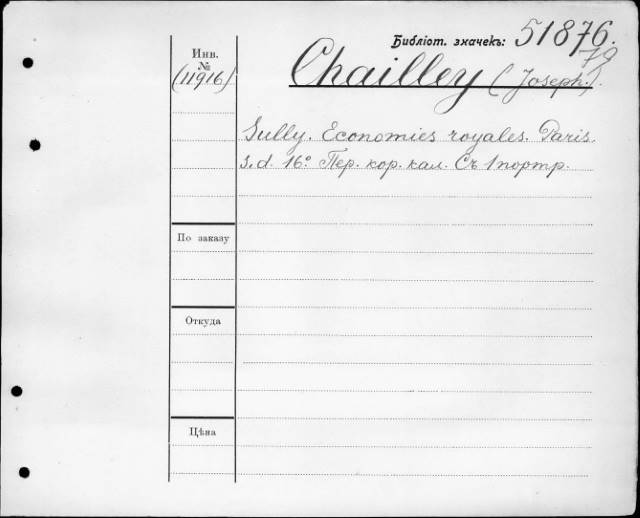 Библіот. значекъ: 51876.
79
Инв.
№
(11916)
Chailley (Joseph).
Sully. Economies royales. Paris.
s.d. 16° Пер. кор. кал. Съ 1 портр.
По заказу
Откуда
Цѣна